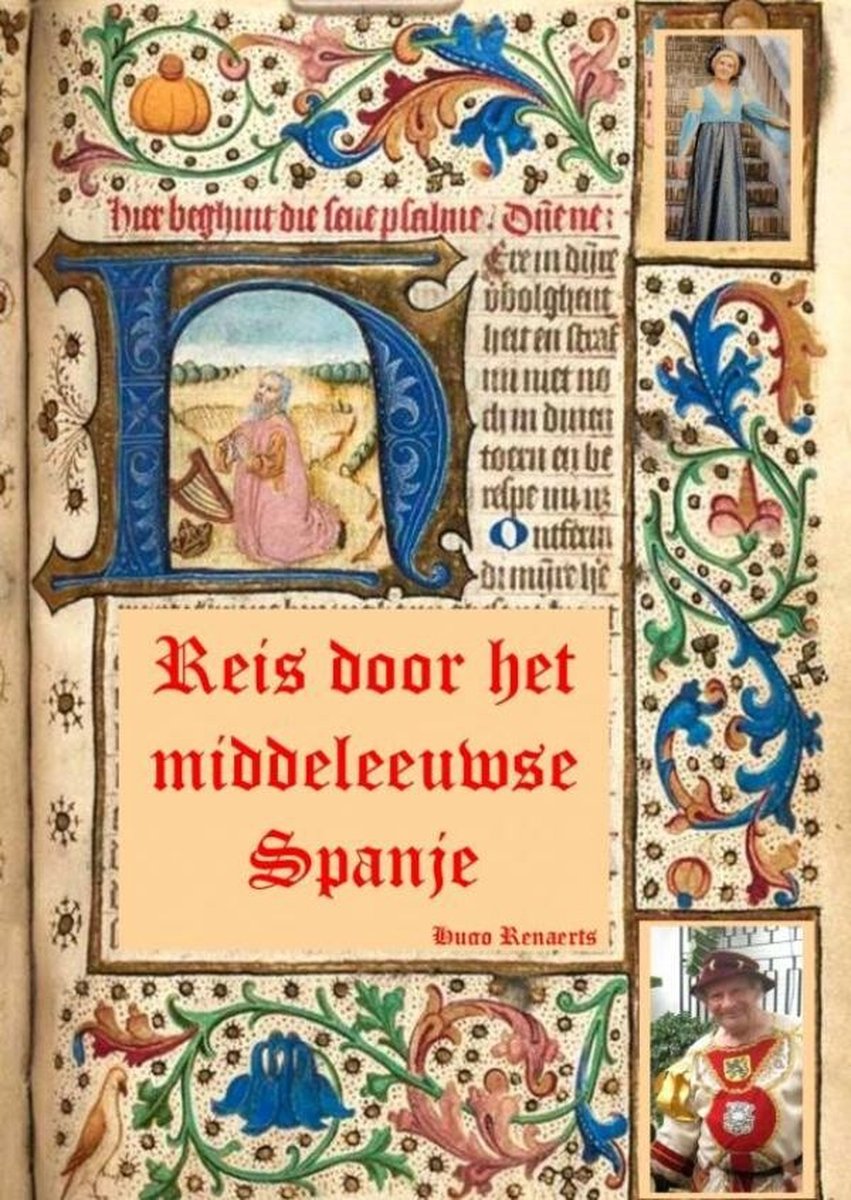 hier beghint die seue psalme. Dñe ne:
Here in dijnre
vbolghent
heit en straf
mi niet no
ch in dinen
toern en be
respe mi
Ontferm
Reis door het
middeleeuwse
Spanje
Hugo Renaerts